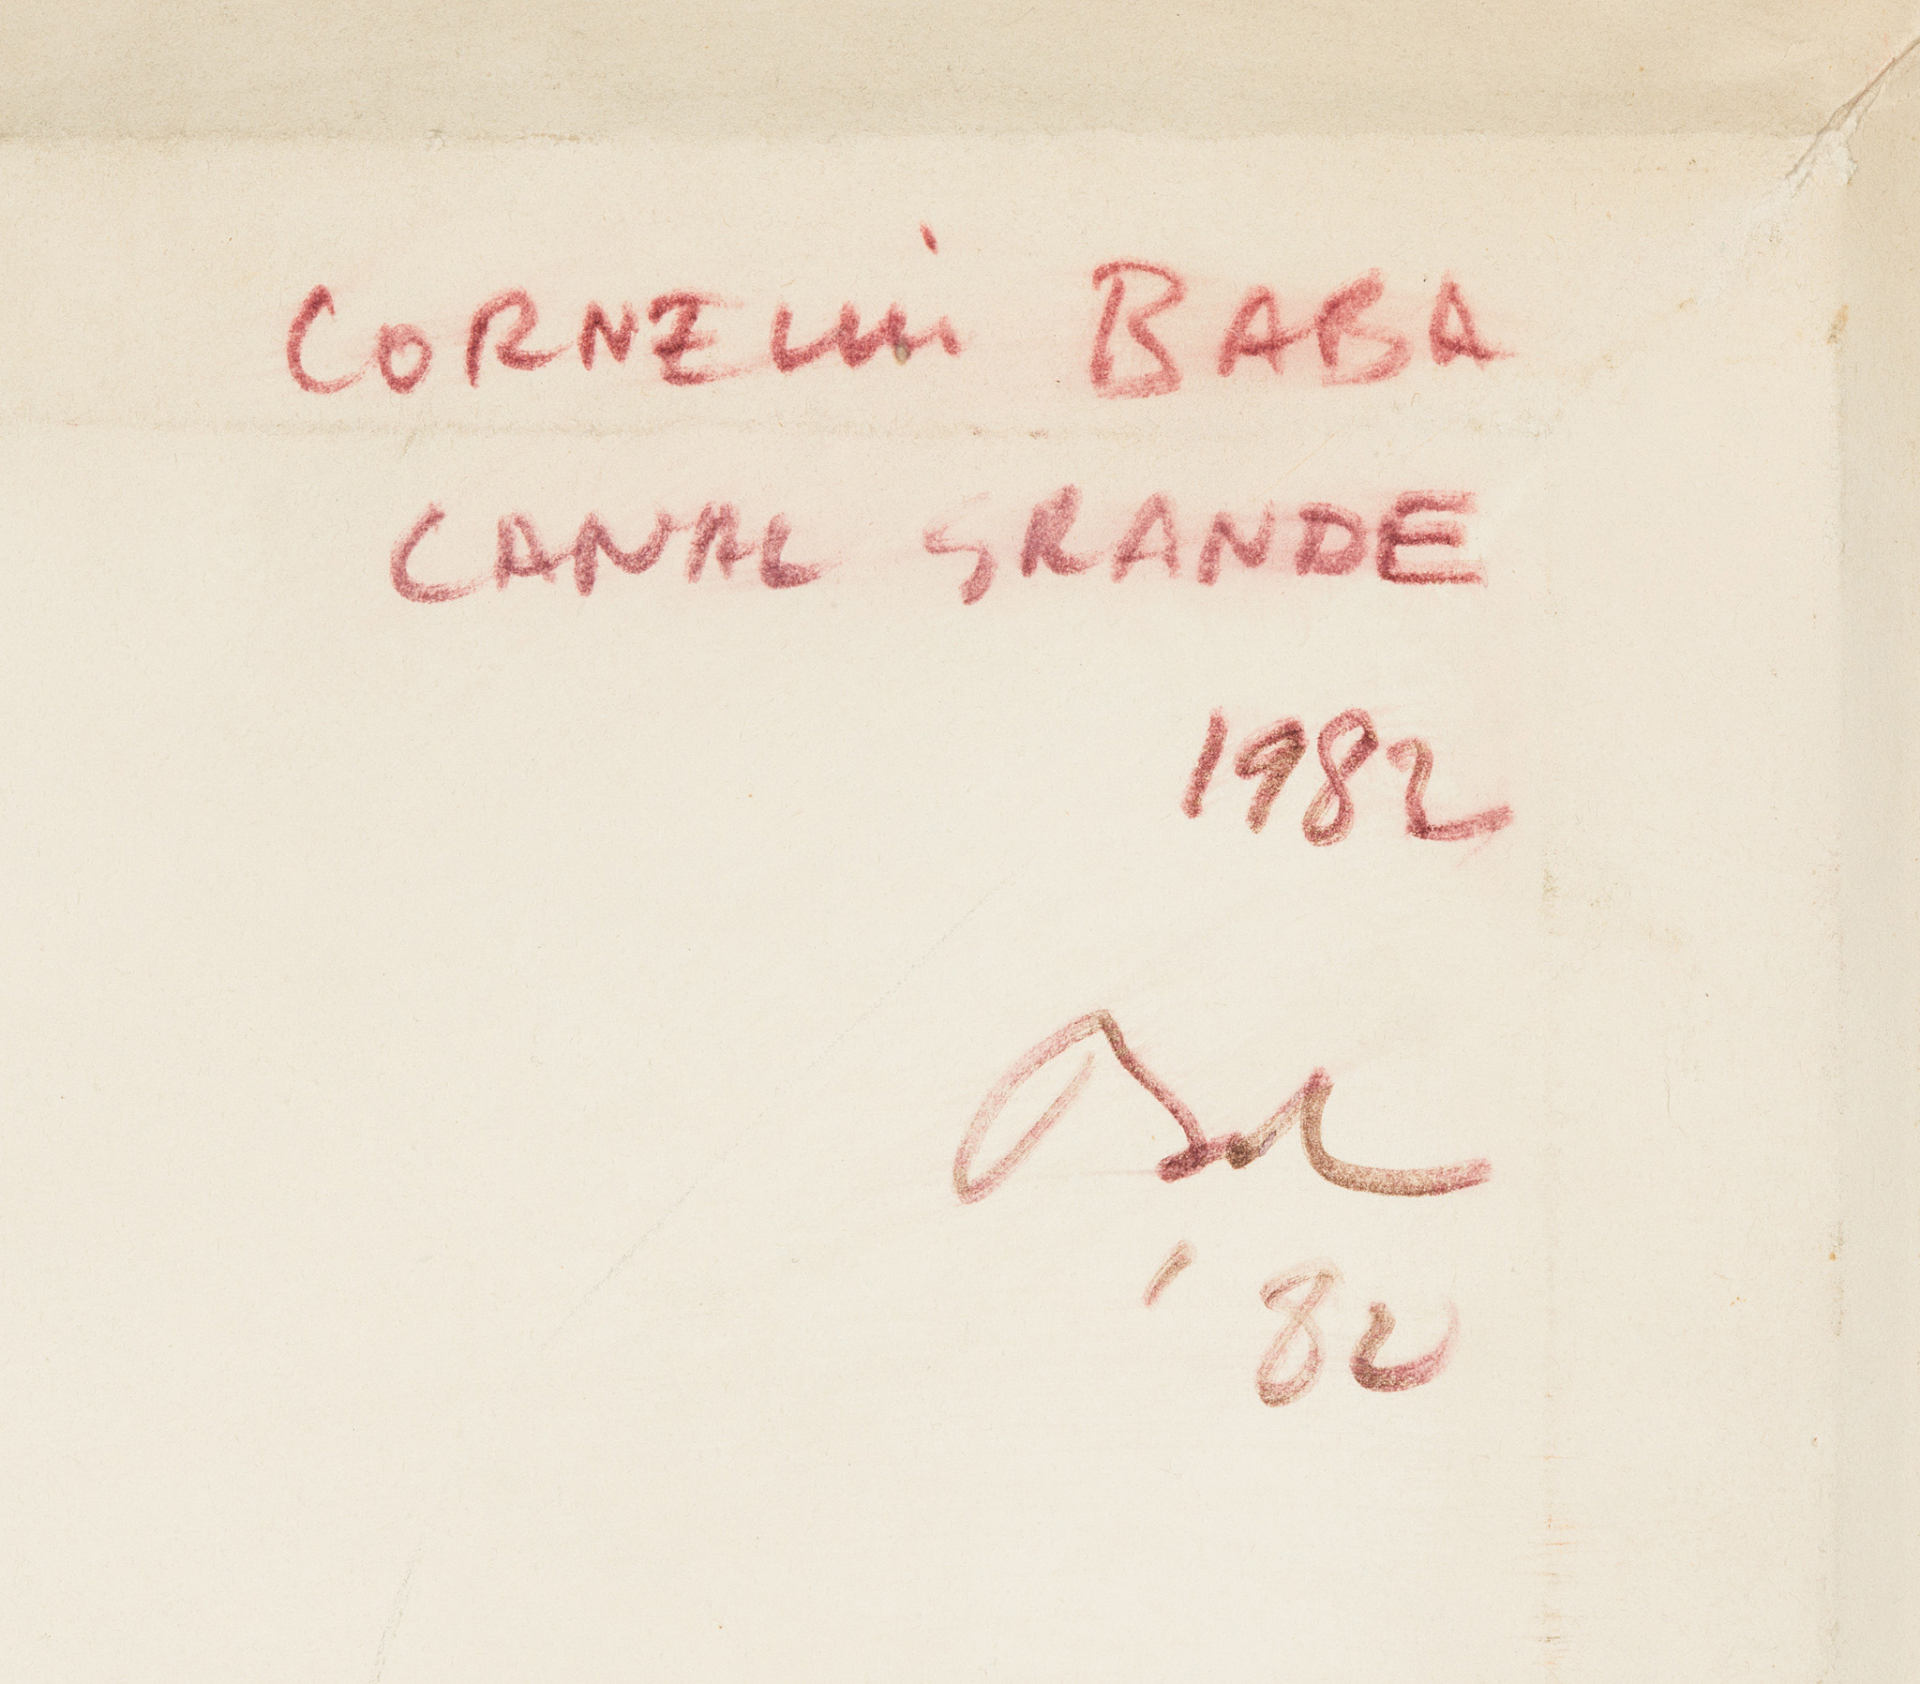 CORNELIU BABA
CANAL GRANDE
1982
'82